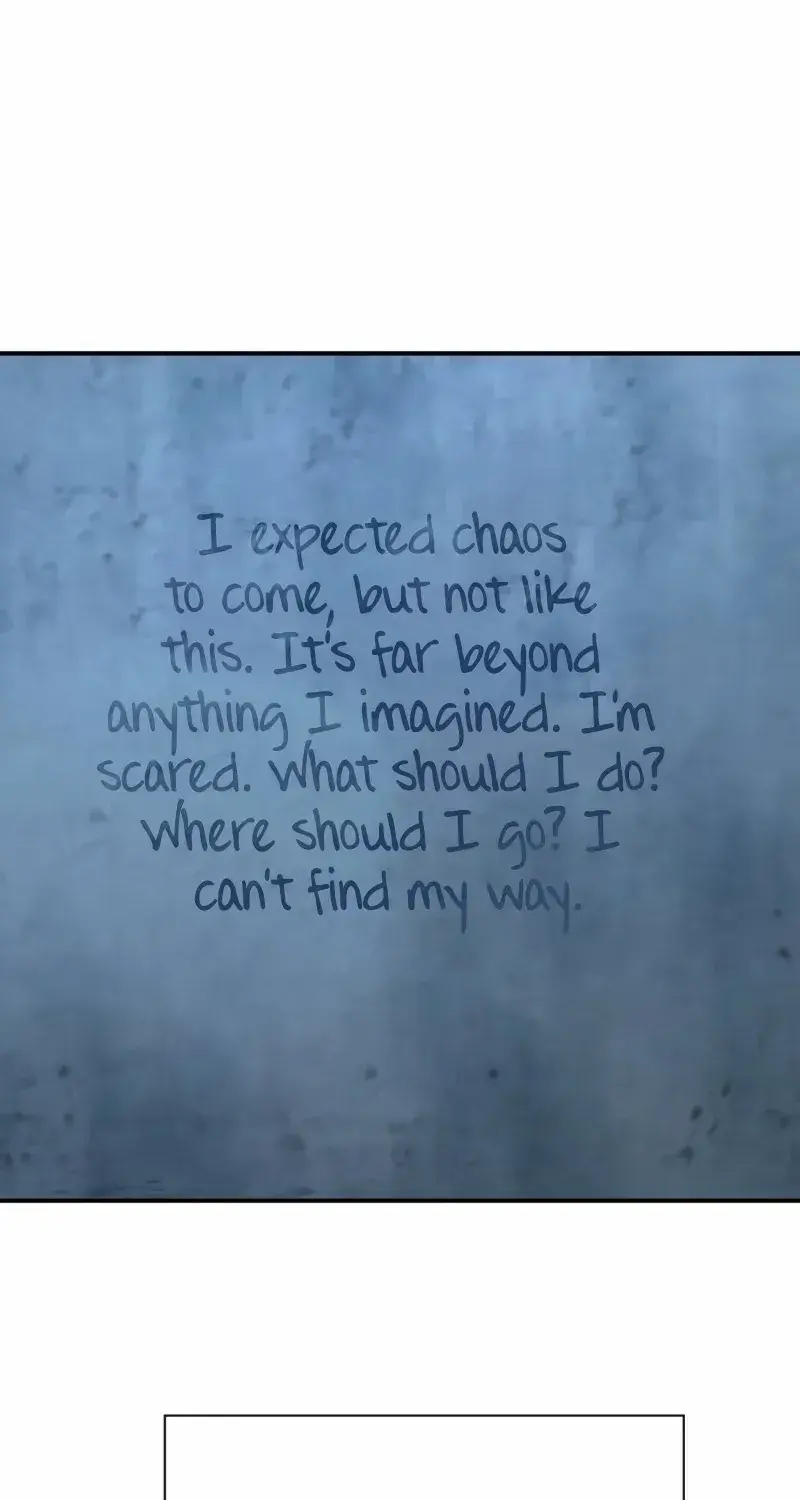 I expected chaos
to come, but not like
this. It's far beyond
anything I imagined. I'm
scared. What should I do?
Where should I go? I
can't find my way.